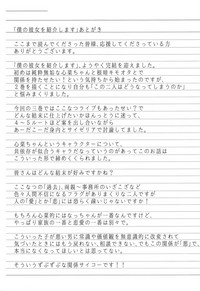 「僕の彼女を紹介します」あとがき
ここまで読んでくださった皆様、応援してくださっている方
ありがとうございます。
「僕の彼女を紹介します」、ようやく完結を迎えました。
始めは純粋無垢な心菜ちゃんと根暗キモオタとで
関係性を明るく描いていくつもりだったのですが、
2巻を描くことになり自分も「この二人はどうなってしまうのか」
と悩みまくりました。
今回の三巻ではここなつライブもあったせいで?
どんな結末に仕上げたいかほんっとうに迷って、
4~5ルートほど案を出し合いながら
あーだこーだ身内とサイゼリアで討論してました。
心菜ちゃんというキャラクターについて、
共依存が似合うキャラだなっていうのがあってこのお話は
こういった形で締めくくられました。
皆さんはどんな結末が好みですかね?
ここなつの「過去」、両親～事務所のいざこざなど
色々人間不信になるフラグがありまくりな二人ですが
人の「愛」とか「恋」には恐らく疎いじゃないですか!
もちろん心菜的にはなっちゃんが一番なんですけど、
やっぱり家族の一番と恋愛の一番は別々で、
こういった子が悪い男に常識や価値観を無意識的に改変されて
気づいたときにはもう戻れない、軽蔑できない、でもこの関係が「悪」で、
本当になくなってほしいとは思ってない。
そういうずぶずぶな関係サイコーです!!